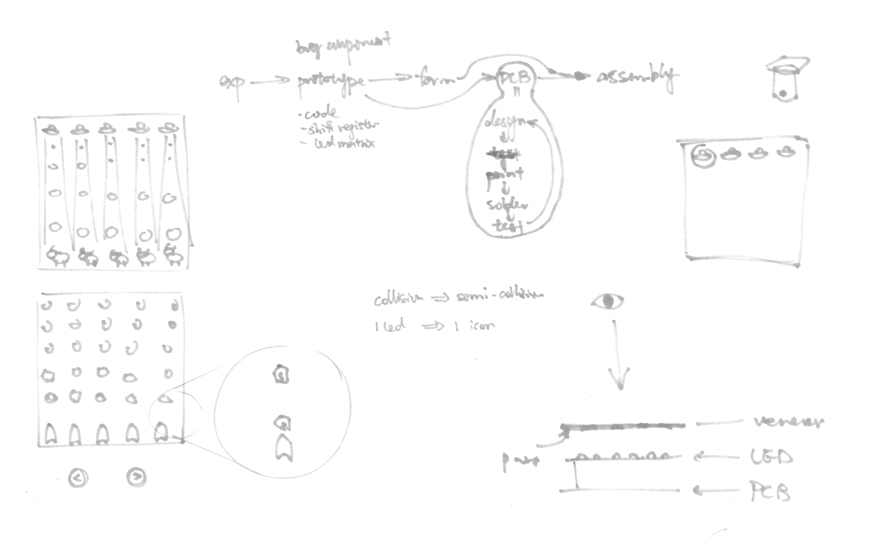 exp → prototype → form → PCB → assembly
- code
- shift register
- led matrix
design
test
print
solder
test
collision ⇒ semi-collision
1 led ⇒ 1 icon
< >
veneer
LED
PCB